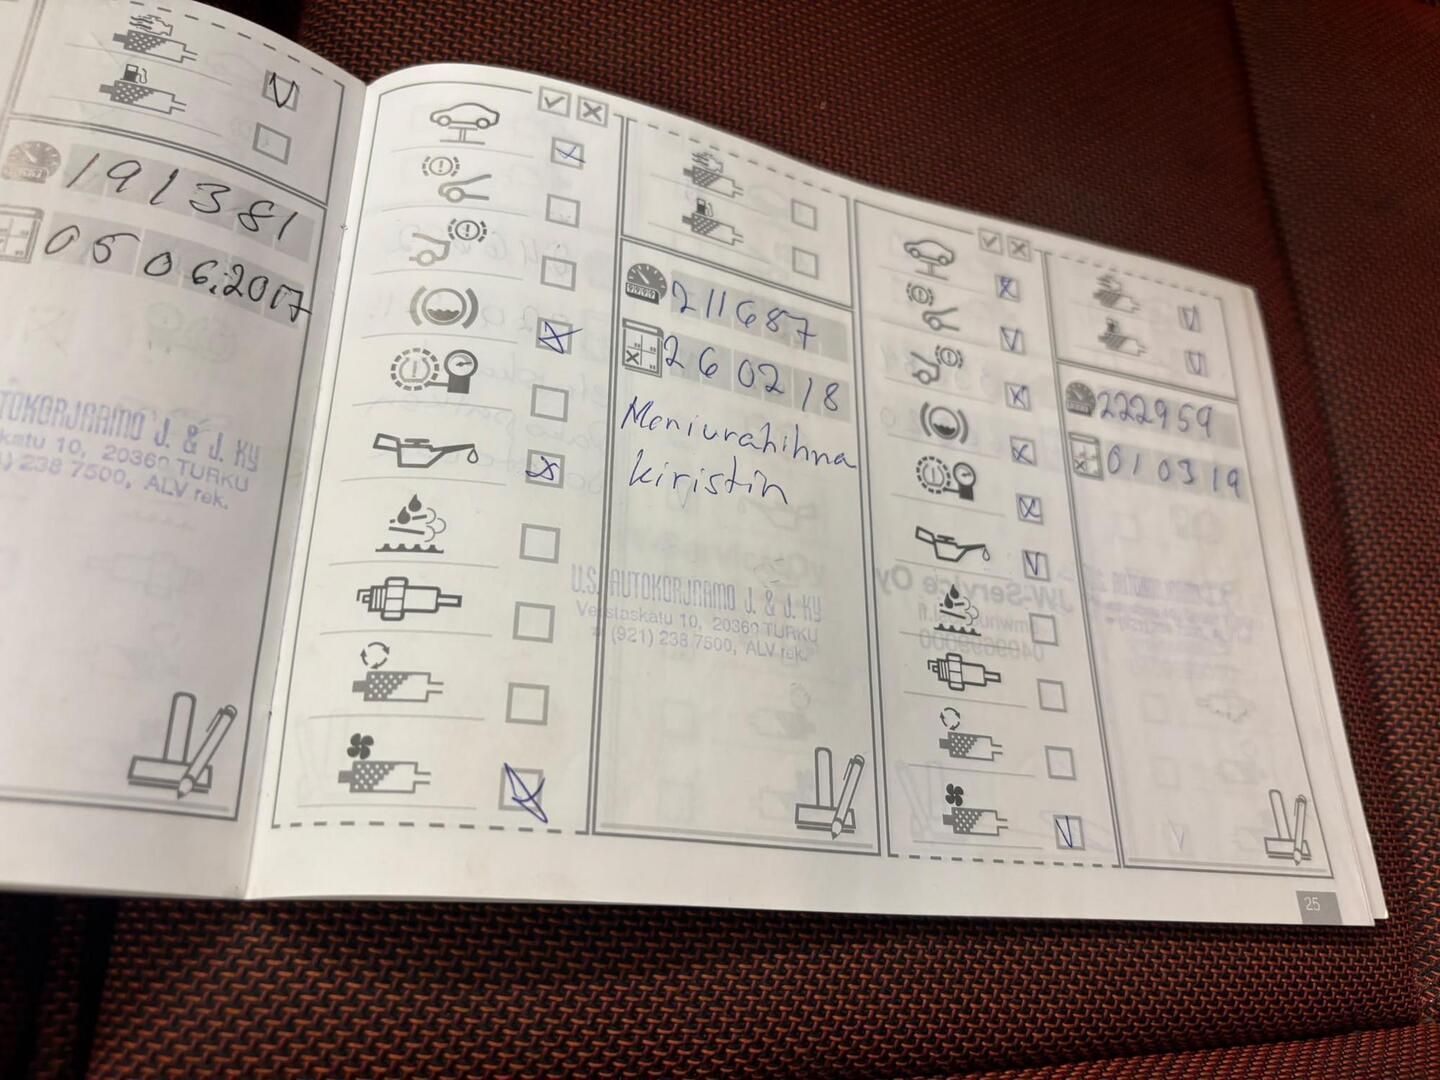 191381
05 06.2017
AUTOKORJAAMO J. & J. KY
katu 10, 20360 TURKU
1) 238 7500, ALV rek.
211687
26 02 18
Moniurahihna
kiristin
U.S. AUTOKORJAAMO J. & J. KY
Verstaskatu 10, 20360 TURKU
(921) 238 7500, ALV rek.
222959
01 03 19
JW-Service Oy
040969900
25